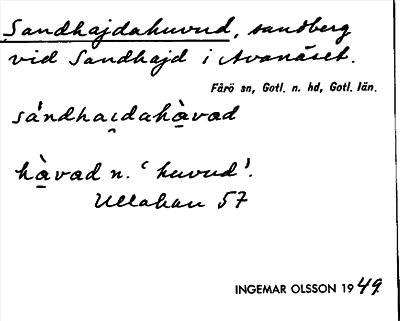 Sandhajdahuvud, sandberg
vid Sandhajd i Avanäset.
Fårö sn, Gotl. n. hd, Gotl. län.
sándhai̯dahàvad
hàvad n. 'huvud'.
Ullahau 57
INGEMAR OLSSON 1949